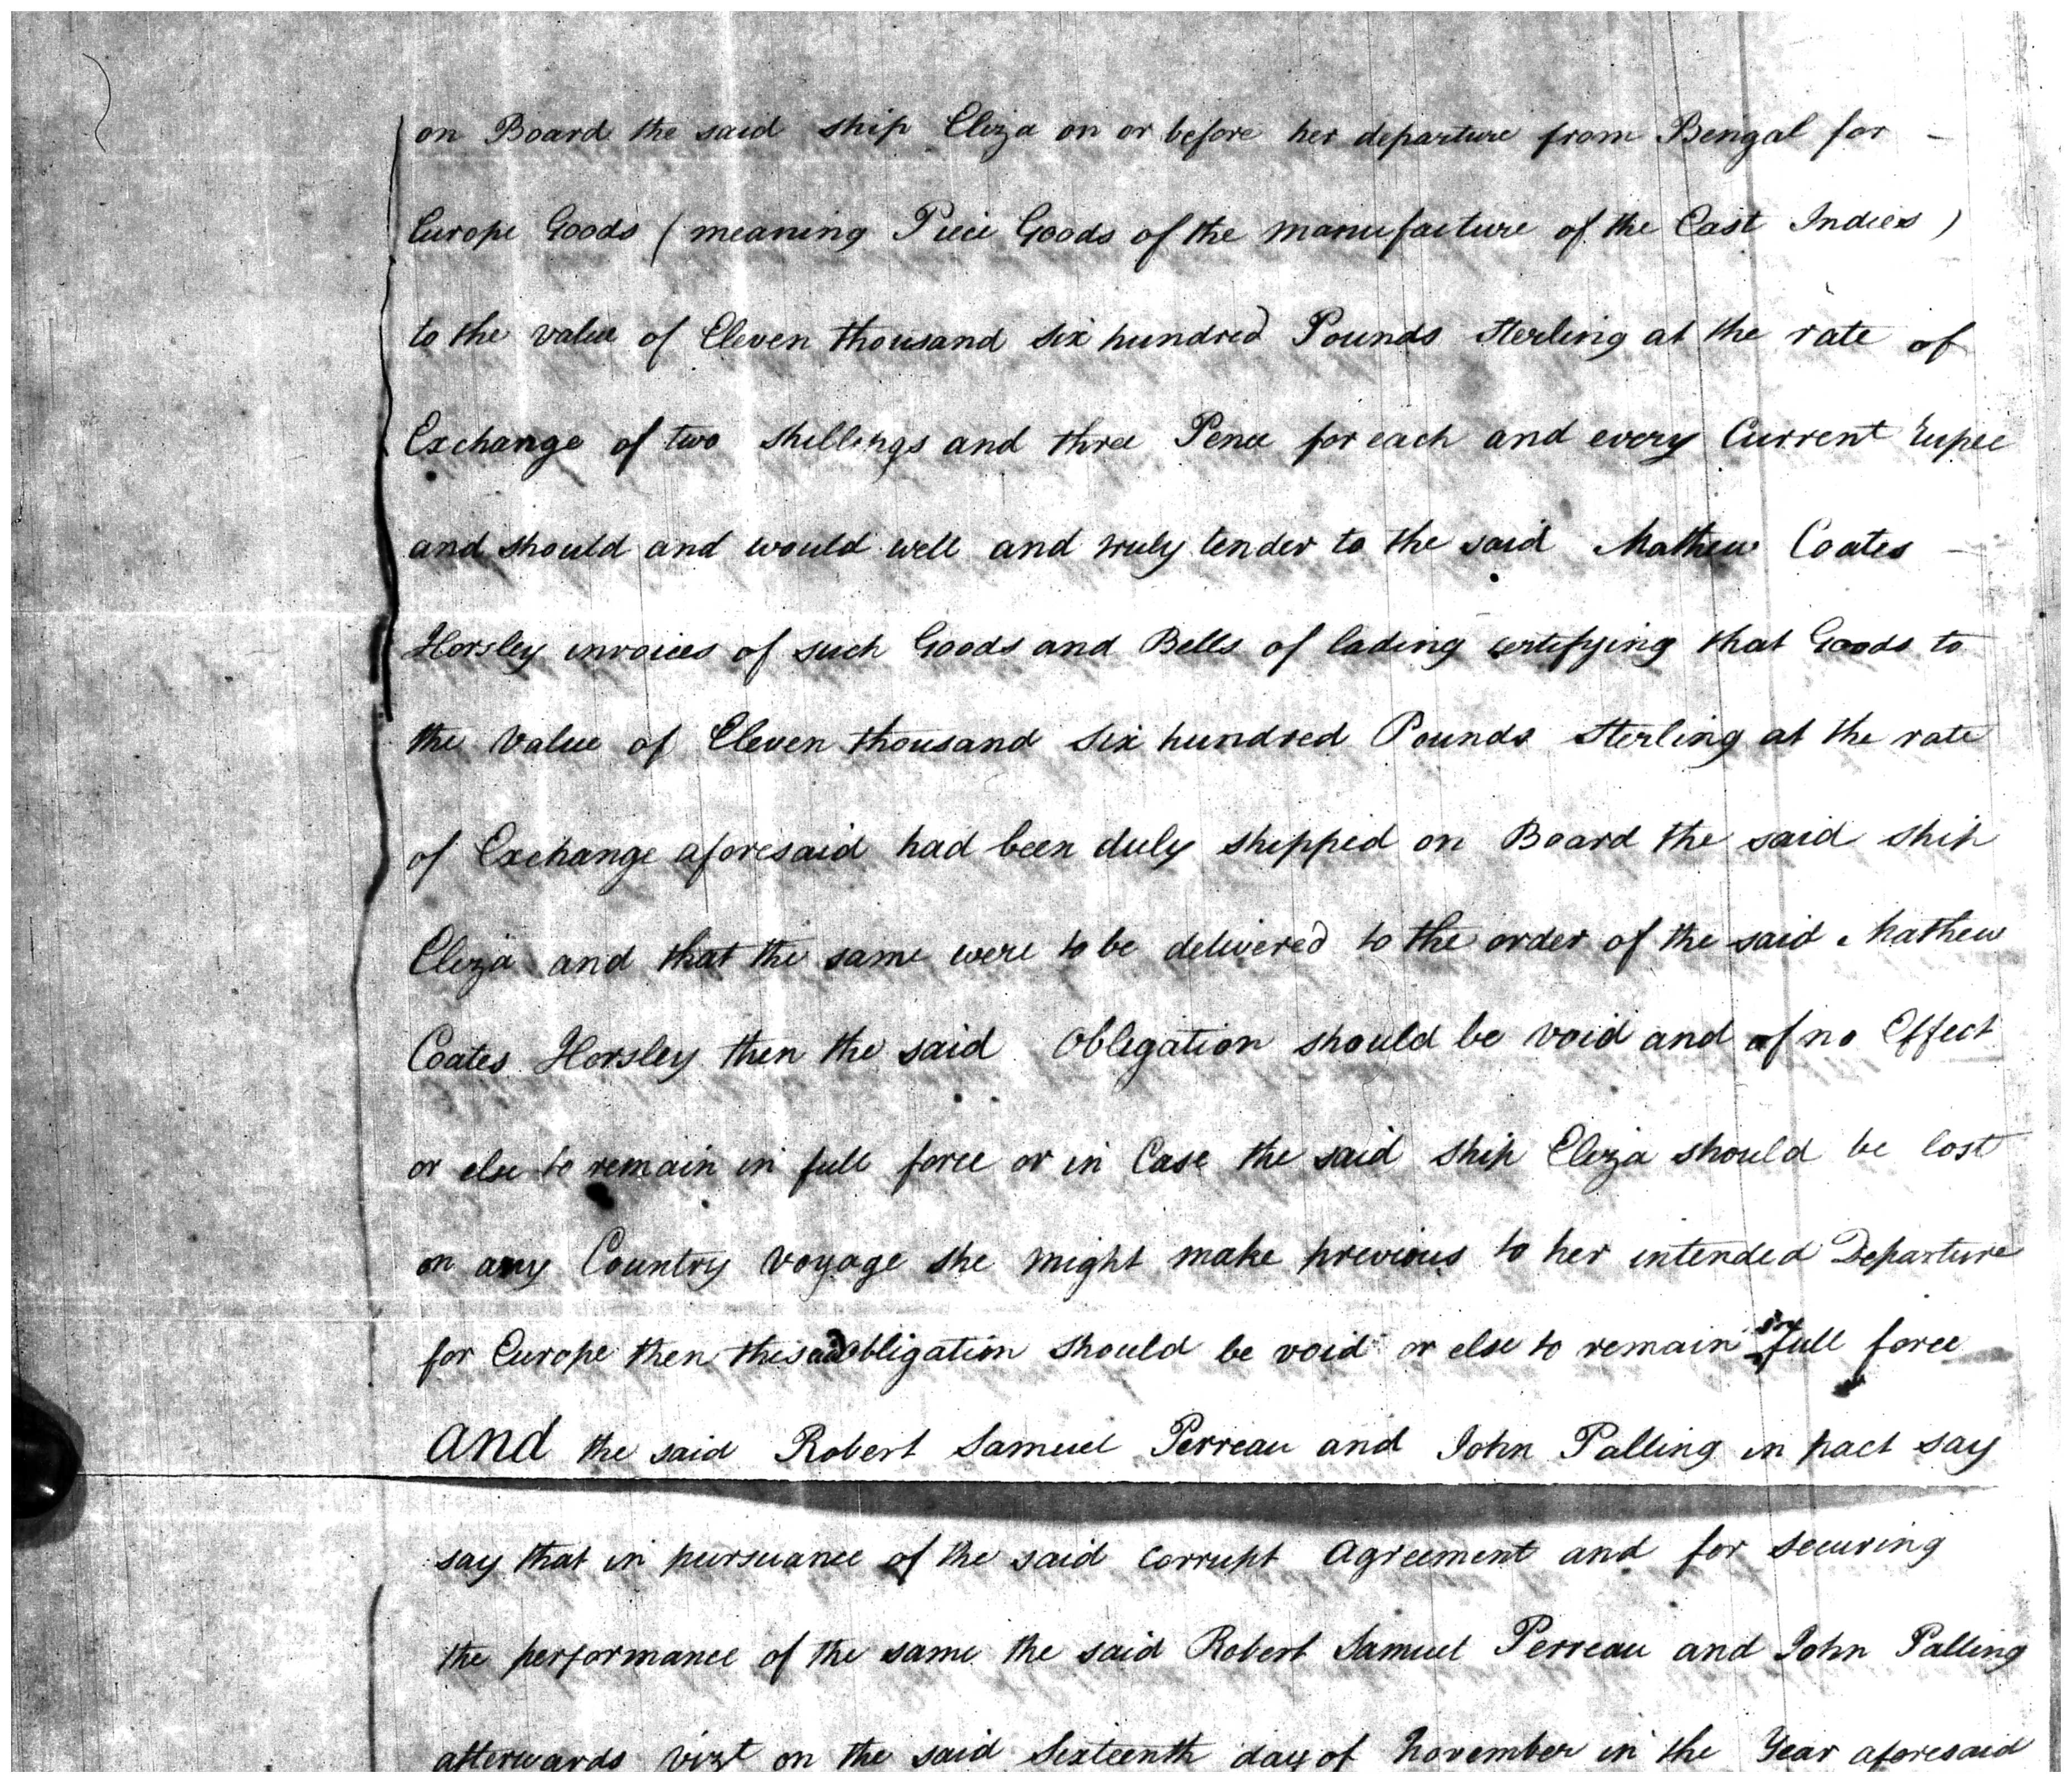 on Board the said ship Eliza on or before her departure from Bengal for -
Europe Goods ( meaning Piece Goods of the manufacture of the East Indies )
to the value of Eleven thousand six hundred Pounds Sterling at the rate of
Exchange of two Shillings and three Pence for each and every Current rupee
and should and would well and truly tender to the said Mathew Coates -
Horsley invoices of such Goods and Bills of lading certifying that Goods to
the value of Eleven thousand six hundred Pounds Sterling at the rate
of Exchange aforesaid had been duly shipped on Board the said ship
Eliza and that the same were to be delivered to the order of the said Mathew
Coates Horsley then the said Obligation should be void and of no Effect
or else to remain in full force or in Case the said ship Eliza should be lost
on any Country voyage she might make previous to her intended Departure
for Europe then this obligation should be void or else to remain in full force
and the said Robert Samuel Perreau and John Palling in fact say
say that in pursuance of the said corrupt agreement and for securing
the performance of the same the said Robert Samuel Perreau and John Palling
afterwards vizt on the said Sixteenth day of November in the Year aforesaid